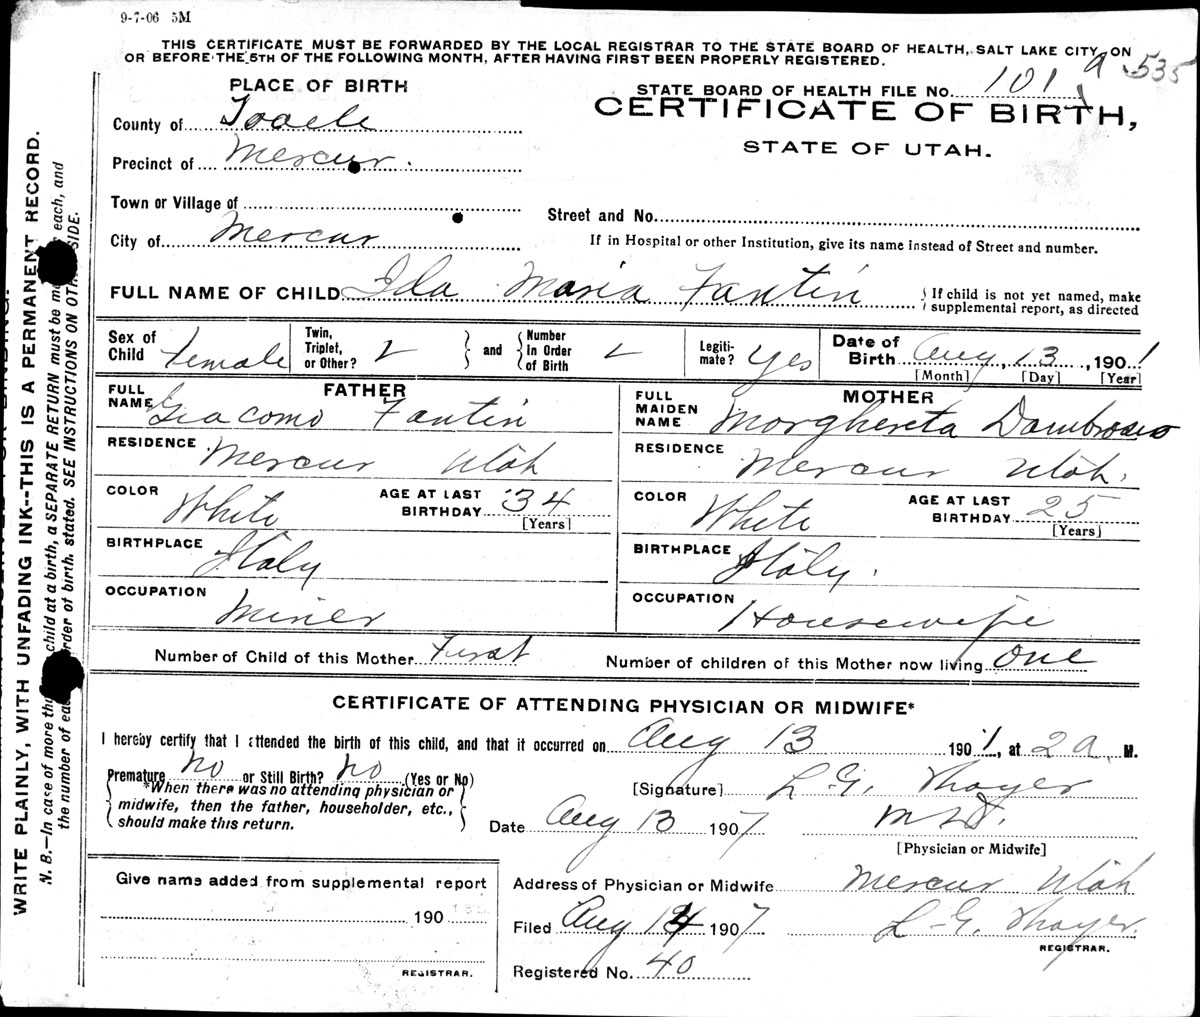 9-7-06 5M
THIS CERTIFICATE MUST BE FORWARDED BY THE LOCAL REGISTRAR TO THE STATE BOARD OF HEALTH, SALT LAKE CITY, ON
OR BEFORE THE 5TH OF THE FOLLOWING MONTH, AFTER HAVING FIRST BEEN PROPERLY REGISTERED.
535
PLACE OF BIRTH
STATE BOARD OF HEALTH FILE No. 101
CERTIFICATE OF BIRTH,
STATE OF UTAH.
County of Tooele
Precinct of Mercur.
Town or Village of
Street and No.
City of Mercur
If in Hospital or other Institution, give its name instead of Street and number.
FULL NAME OF CHILD Ida Maria Fantin
If child is not yet named, make supplemental report, as directed
Sex of Child female Twin, Triplet, or Other? and Number In Order of Birth Legiti- mate? Yes Date of Birth Aug, 13, 190
[Month] [Day] [Year]
FATHER MOTHER
FULL NAME Giacomo Fantin FULL MAIDEN NAME Morghereta Dambrosio
RESIDENCE Mercur Utah RESIDENCE Mercur Utah.
COLOR White AGE AT LAST BIRTHDAY 34 [Years] COLOR White AGE AT LAST BIRTHDAY 25 [Years]
BIRTHPLACE Italy BIRTHPLACE Italy.
OCCUPATION Miner OCCUPATION Housewife
Number of Child of this Mother First Number of children of this Mother now living One
CERTIFICATE OF ATTENDING PHYSICIAN OR MIDWIFE*
I hereby certify that I attended the birth of this child, and that it occurred on Aug 13 190 , at 2 a. M.
Premature No or Still Birth? No (Yes or No)
*When there was no attending physician or
midwife, then the father, householder, etc.,
should make this return.
[Signature] L. G. Thayer
Date Aug 13 1907 M.D.
[Physician or Midwife]
Give name added from supplemental report
190
REGISTRAR.
Address of Physician or Midwife Mercur Utah
Filed Aug 14 1907 L. G. Thayer.
REGISTRAR.
Registered No. 40
WRITE PLAINLY, WITH UNFADING INK--THIS IS A PERMANENT RECORD.
N. B.—In case of more child at a birth, a SEPARATE RETURN must be each, and
the number of order of birth, stated. SEE INSTRUCTIONS ON SIDE.